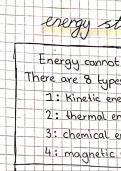 energy st
Energy cannot
There are 8 types
1: Kinetic ene
2: thermal en
3: chemical e
4: magnetic